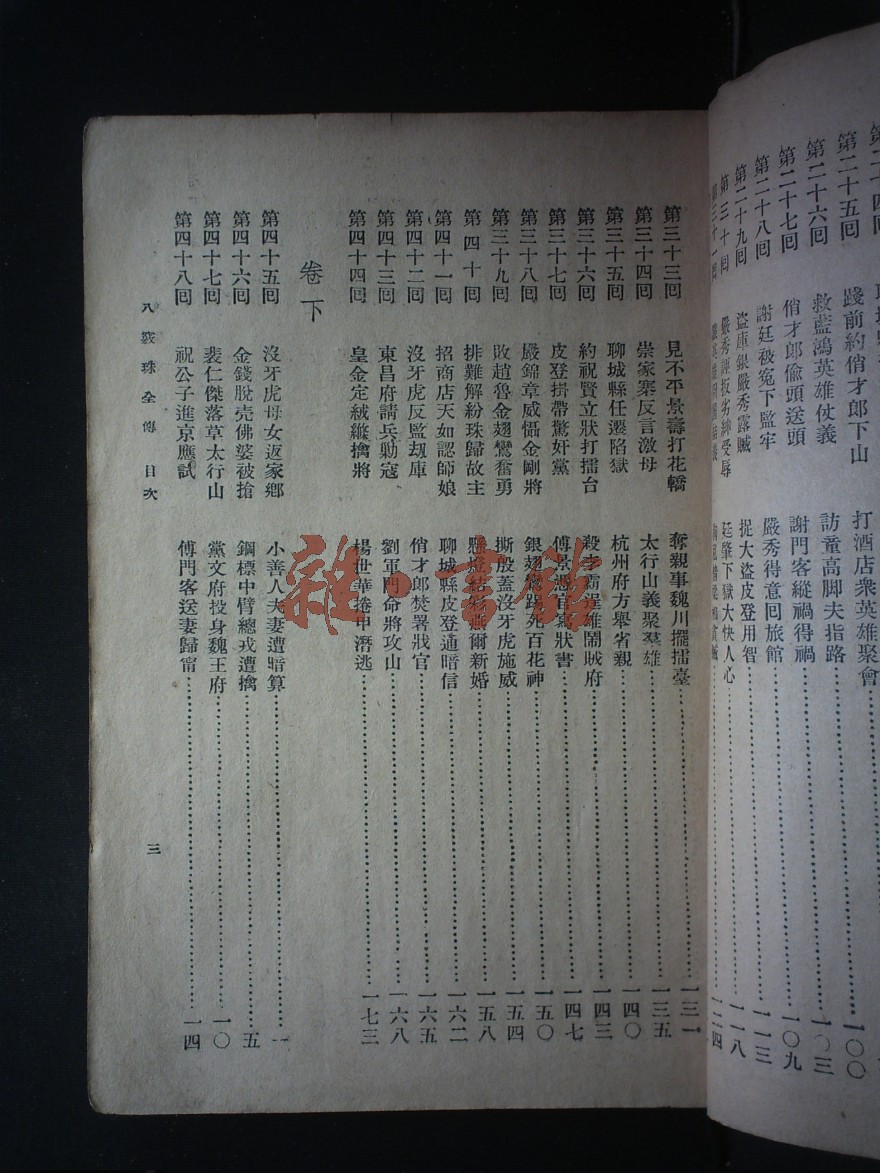 踐前約俏才郎下山 打酒店衆英雄聚會 一〇〇
第二十五回
第二十六回 救藍鴻英雄仗義 訪董高脚夫指路 一〇三
第二十七回 俏才郎偸頭送頭 謝門客縱禍得禍 一〇九
第二十八回 謝廷被寃下監牢 嚴秀得意回旅館 一一三
第二十九回 盜庫銀嚴秀露贓 捉大盜皮登用智 一一八
第三十回 嚴秀誣扳劣紳受辱 廷肇下獄大快人心 一二四
第三十三回 見不平景壽打花轎 奪親事魏川擺擂臺 一三一
第三十四回 崇家寨反言激母 太行山義聚羣雄 一三五
第三十五回 聊城縣任遷陷獄 杭州府方舉省親 一四〇
第三十六回 約祝賢立狀打擂台 殺李霸逞雄鬧賊府 一四三
第三十七回 皮登拼帶驚奸黨 傅景憑官寫狀書 一四七
第三十八回 嚴錦章威懾金剛將 銀翅鸞踢死百花神 一五〇
第三十九回 敗趙魯金翅鸞奮勇 撕骰蓋沒牙虎施威 一五四
第四十回 排難解紛珠歸故主 懸燈結彩燕爾新婚 一五八
第四十一回 招商店天如認師娘 聊城縣皮登通暗信 一六二
第四十二回 沒牙虎反監刼庫 俏才郎焚署戕官 一六五
第四十三回 東昌府請兵勦寇 劉軍門命將攻山 一六八
第四十四回 皇金定絨縧擒將 楊世華捲甲潛逃 一七三
卷下
第四十五回 沒牙虎母女返家鄉 小善人夫妻遭暗算 一
第四十六回 金錢脫売佛婆被搶 鋼標中臂總戎遭擒 五
第四十七回 裴仁傑落草太行山 黨文府投身魏王府 一〇
第四十八回 祝公子進京應試 傅門客送妻歸甯 一四
八竅珠全傳 目次 三
雜·書館